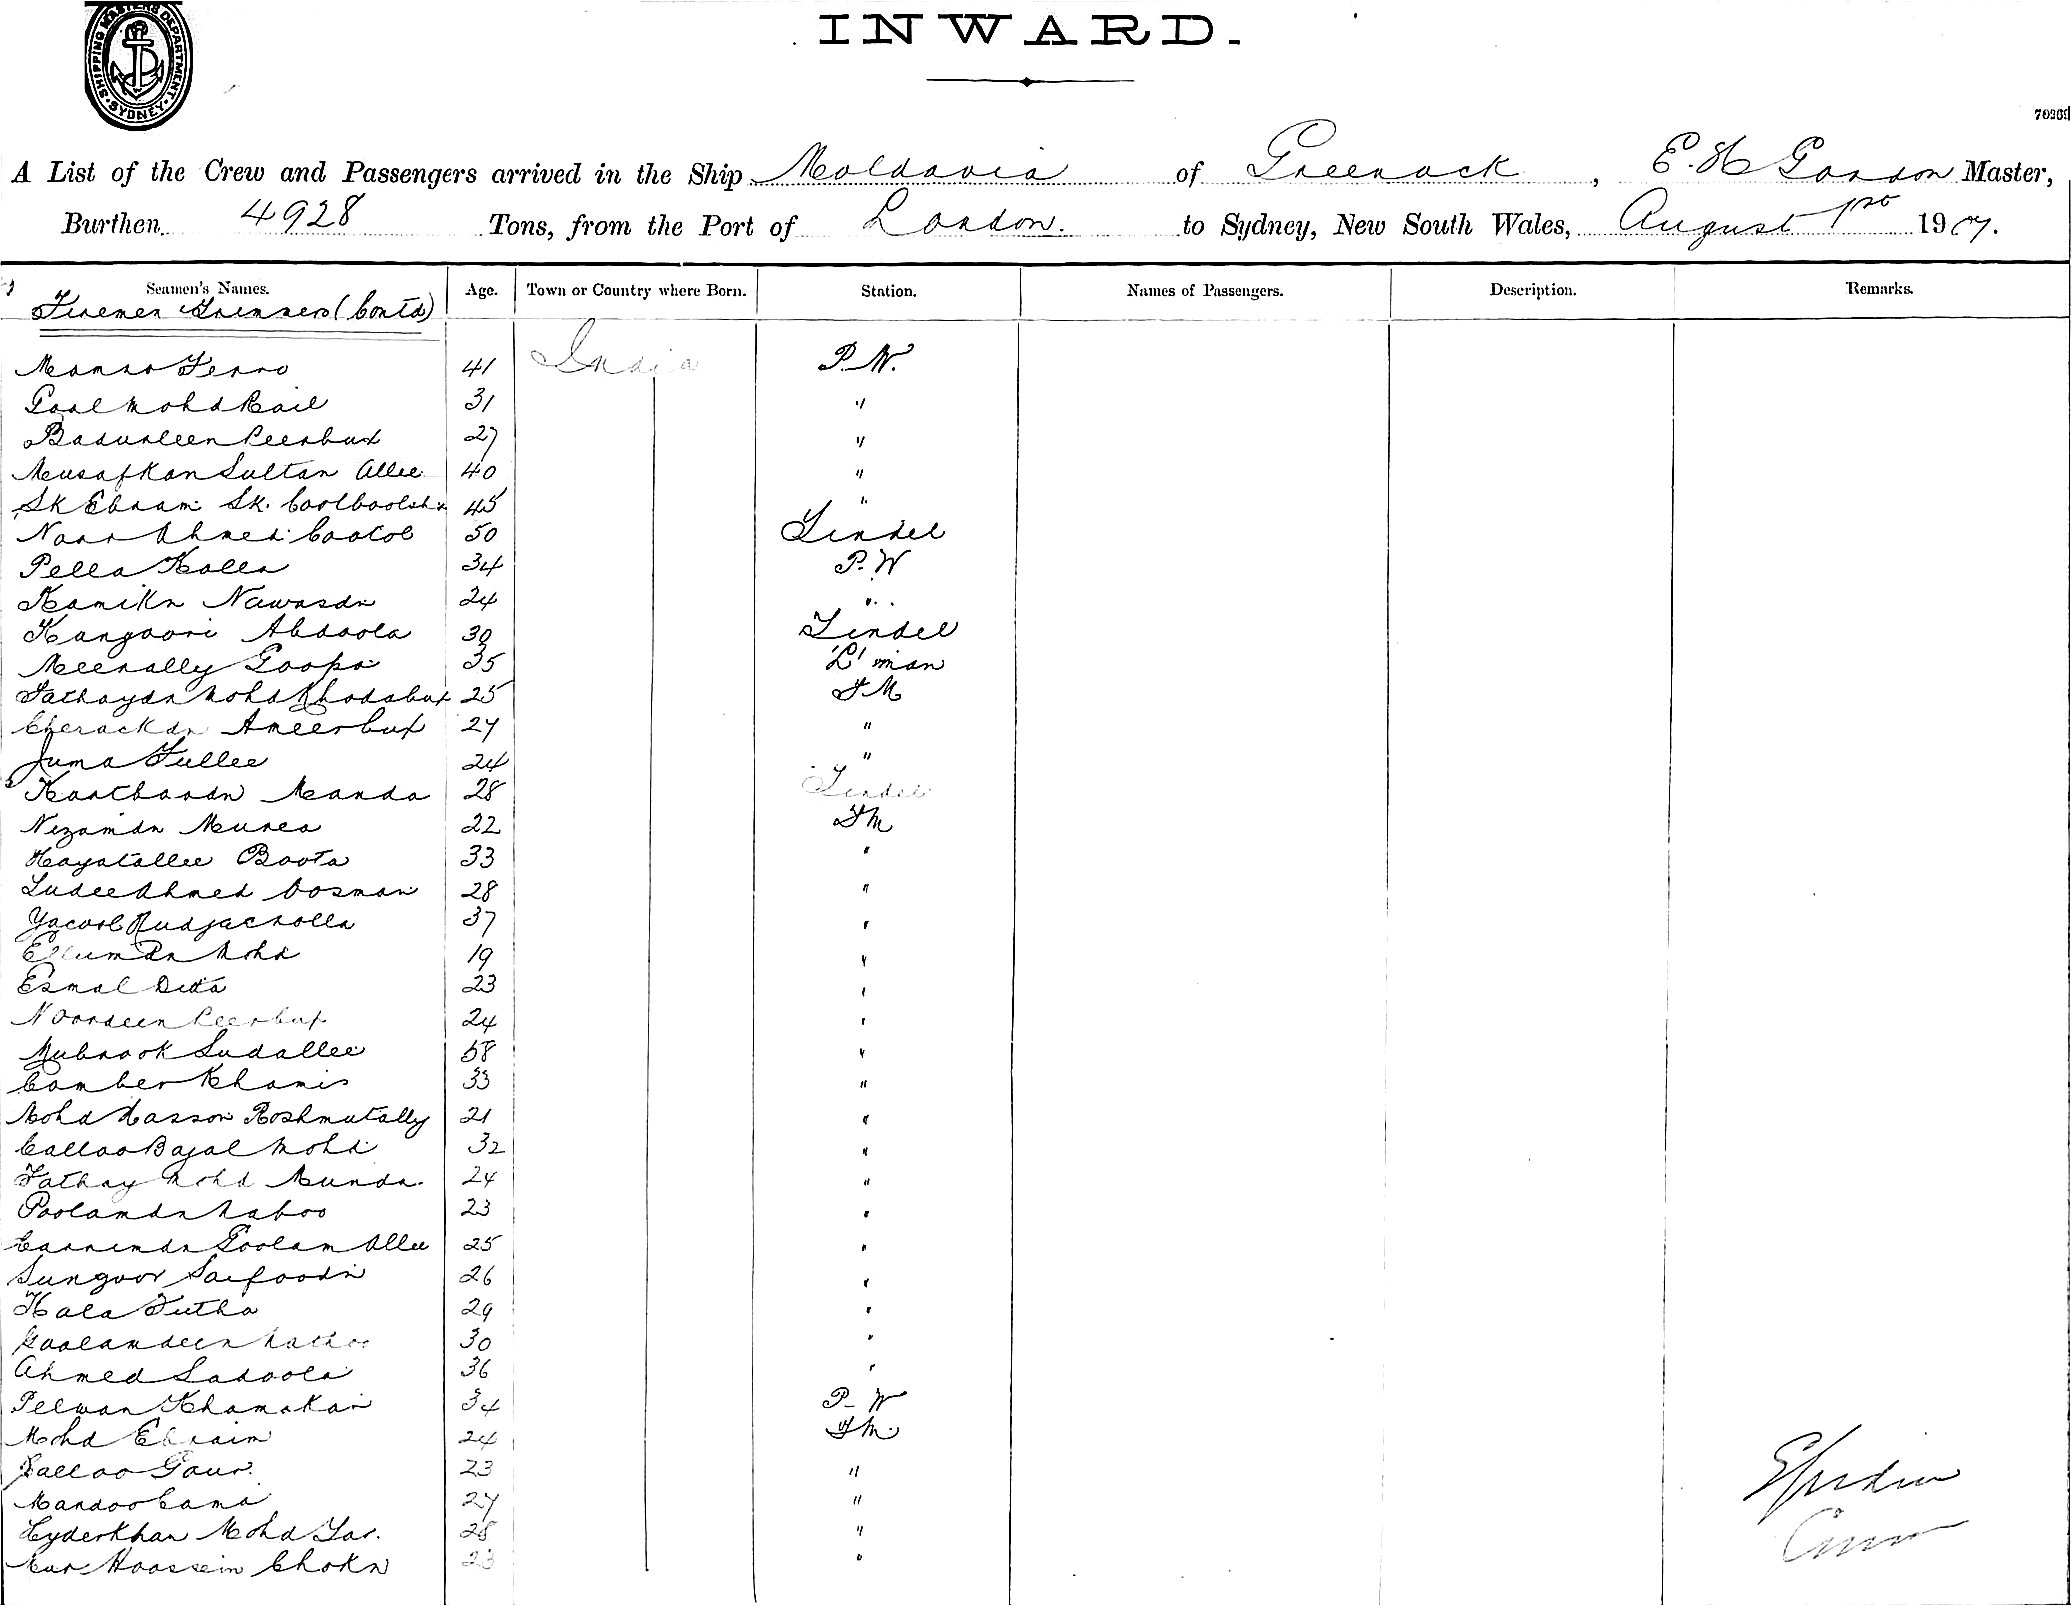 SHIPPING MASTERS DEPARTMENT SYDNEY
INWARD.
A List of the Crew and Passengers arrived in the Ship Moldavia of Greenock, E. H Gordon Master,
Burthen 4928 Tons, from the Port of London. to Sydney, New South Wales, August 1st 1907.
Seamen's Names. Age. Town or Country where Born. Station. Names of Passengers. Description. Remarks.
Firemen Trimmers (Contd)
41 India P. W.
Gool Mohd 31 "
Badurdeen Peerbux 27 "
Musafkan Sultan Allee 40 "
Sk Ebram Sk. 45 "
Noor Ahmed 50 Tindel
Pella Kalla 34 P. W
Nawabdn 24 "
Kangoori Abdoola 30 Tindel
Meerally Goopa 35 'L' man
Fathaydn Mohd Khodabux 25 F M
Cherackdn Ameerbux 27 "
Juma Fullee 24 "
Manda 28 Tindel
Nizamdn 22 F M
Hayatallee Boota 33 "
Ahmed Oosman 28 "
Yacoob 37 "
Ellumdn Mohd 19 "
Esmal Ditta 23 "
Noordeen Peerbux 24 "
Mubrook Sudallee 38 "
Comber Khamis 33 "
Mohd Hasson Roshmutally 21 "
Calloo Bajal Mohd 32 "
Fathay Mohd Munda 24 "
Goolamdn Naboo 23 "
Carrimdn Goolam Allee 25 "
Sungoor Saifoodn 26 "
Kala Futha 29 "
Goolamdeen Nathoo 30 "
Ahmed Sadoola 36 "
Peewan Khamakan 34 P. W
Mohd Ebraim 24 F M.
Calloo Gour 23 "
Mandoo Cama 27 "
Hyderkhan Mohd Yar. 28 "
Hoossein Chokn 23 "